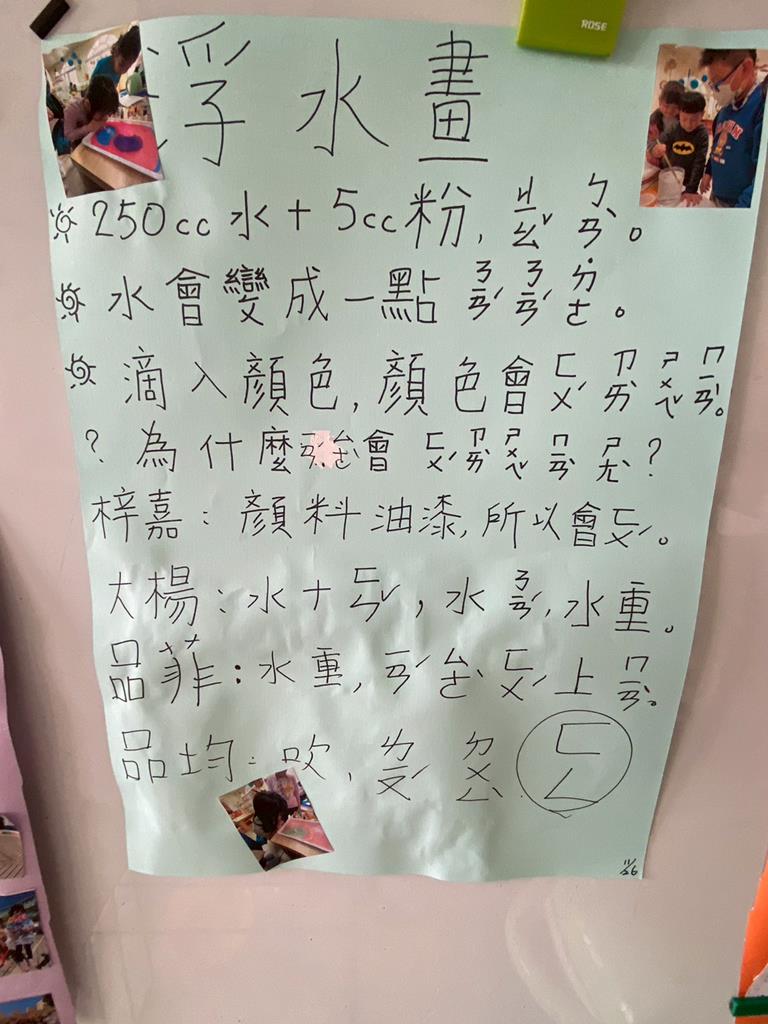 ROSE
浮水畫
250cc水+5cc粉,ㄐㄧㄠˇㄅㄢˋ。
水會變成一點ㄋㄧㄢˊㄋㄧㄢˊ˙ㄉㄜ。
滴入顏色,顏色會ㄈㄨˊㄗㄞˋㄕㄨㄟˇㄇㄧㄢˋ。
?為什麼ㄧㄢˊㄙㄜˋ會ㄈㄨˊㄗㄞˋㄕㄨㄟˇㄇㄧㄢˋㄕㄤˋ?
梓嘉:顏料油漆,所以會ㄈㄨˊ。
大楊:水+ㄈㄣˇ,水ㄋㄧㄢˊ,水重。
品菲:水重,ㄧㄢˊㄙㄜˋㄈㄨˊ上ㄇㄧㄢˋ。
品均:吹,ㄌㄧㄡˊㄉㄨㄥ ㄈㄥ
11/26